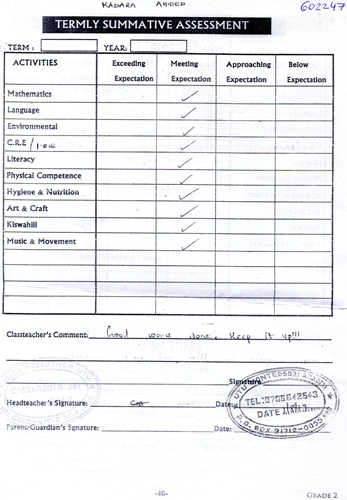 KADARA AHMED
602247
TERMLY SUMMATIVE ASSESSMENT
TERM : YEAR:
ACTIVITIES Exceeding Expectation Meeting Expectation Approaching Expectation Below Expectation
Mathematics ✓
Language ✓
Environmental ✓
C.R.E / I.R.E ✓
Literacy ✓
Physical Competence ✓
Hygiene & Nutrition ✓
Art & Craft ✓
Kiswahili ✓
Music & Movement ✓
Classteacher's Comment: Good work done. Keep it up!!!
Signature
Headteacher's Signature: Date:
MONTESSORI
TEL: 0705642543
DATE
P.O. BOX 21712-00
Parent/Guardian's Signature: Date:
-40-
GRADE 2